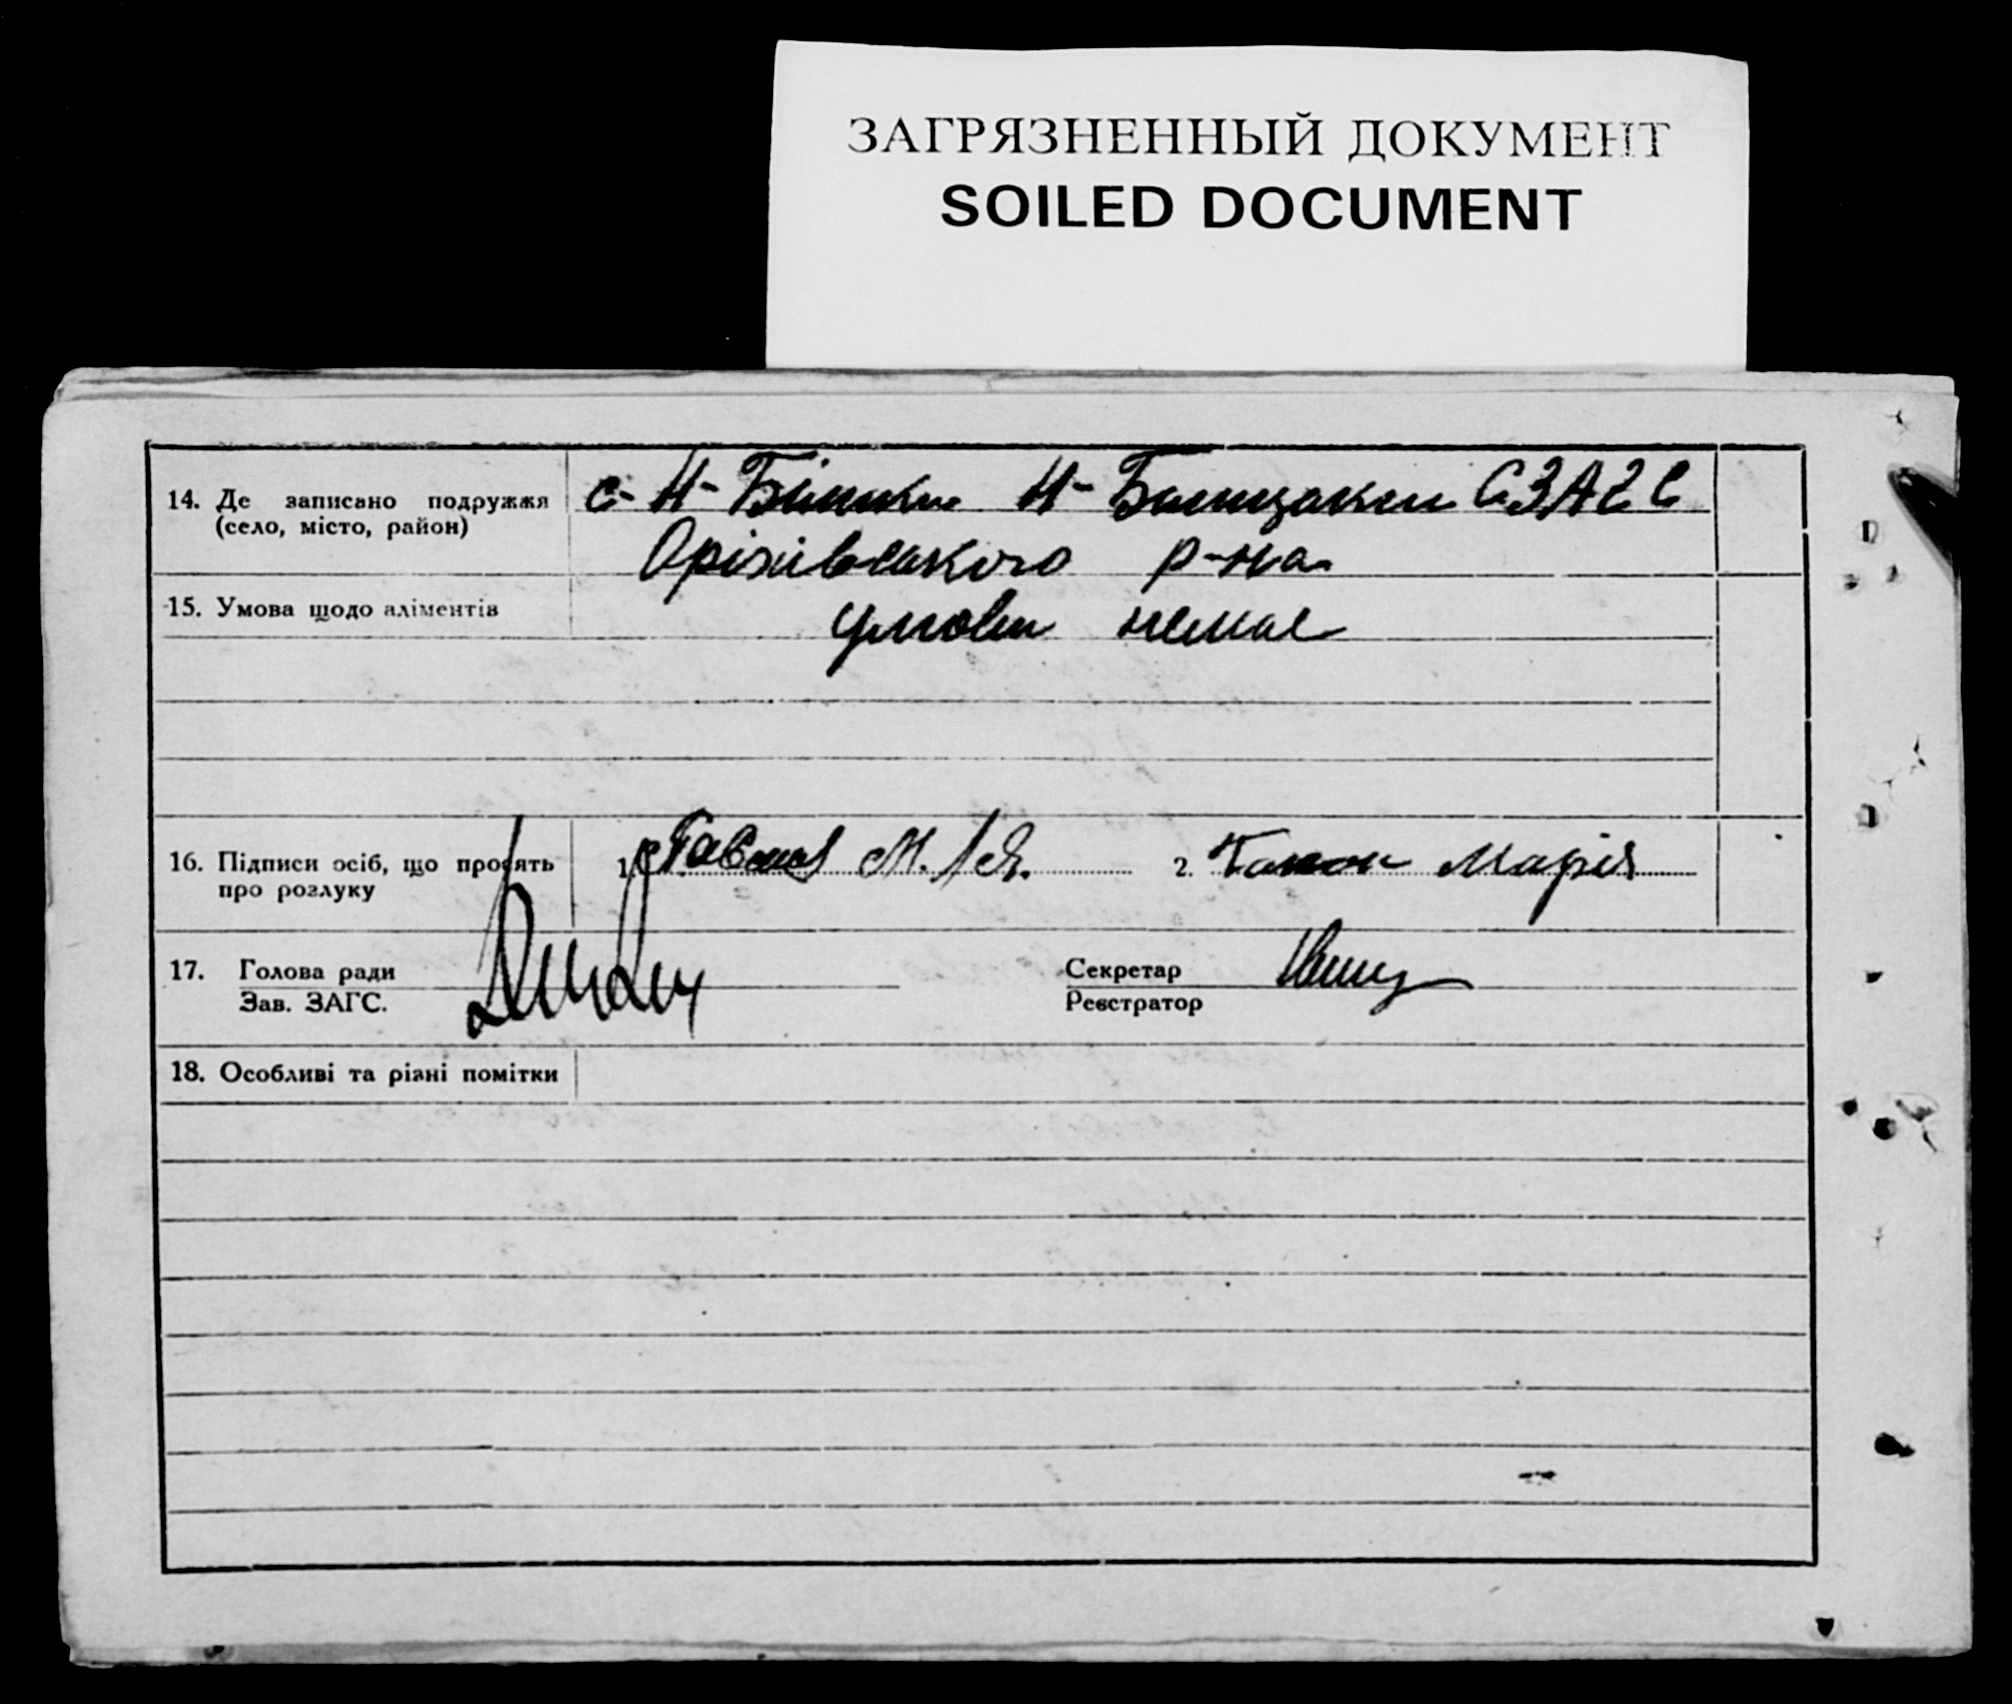 ЗАГРЯЗНЕННЫЙ ДОКУМЕНТ
SOILED DOCUMENT
14. Де записано подружжя с- Н- Білики Н- СЗАГС
(село, місто, район) Оріхівського р-на
15. Умова щодо аліментів умови немає
16. Підписи осіб, що просять 1. М. Я. 2. Марія
про розлуку
17. Голова ради Секретар
Зав. ЗАГС. Реєстратор
18. Особливі та різні помітки